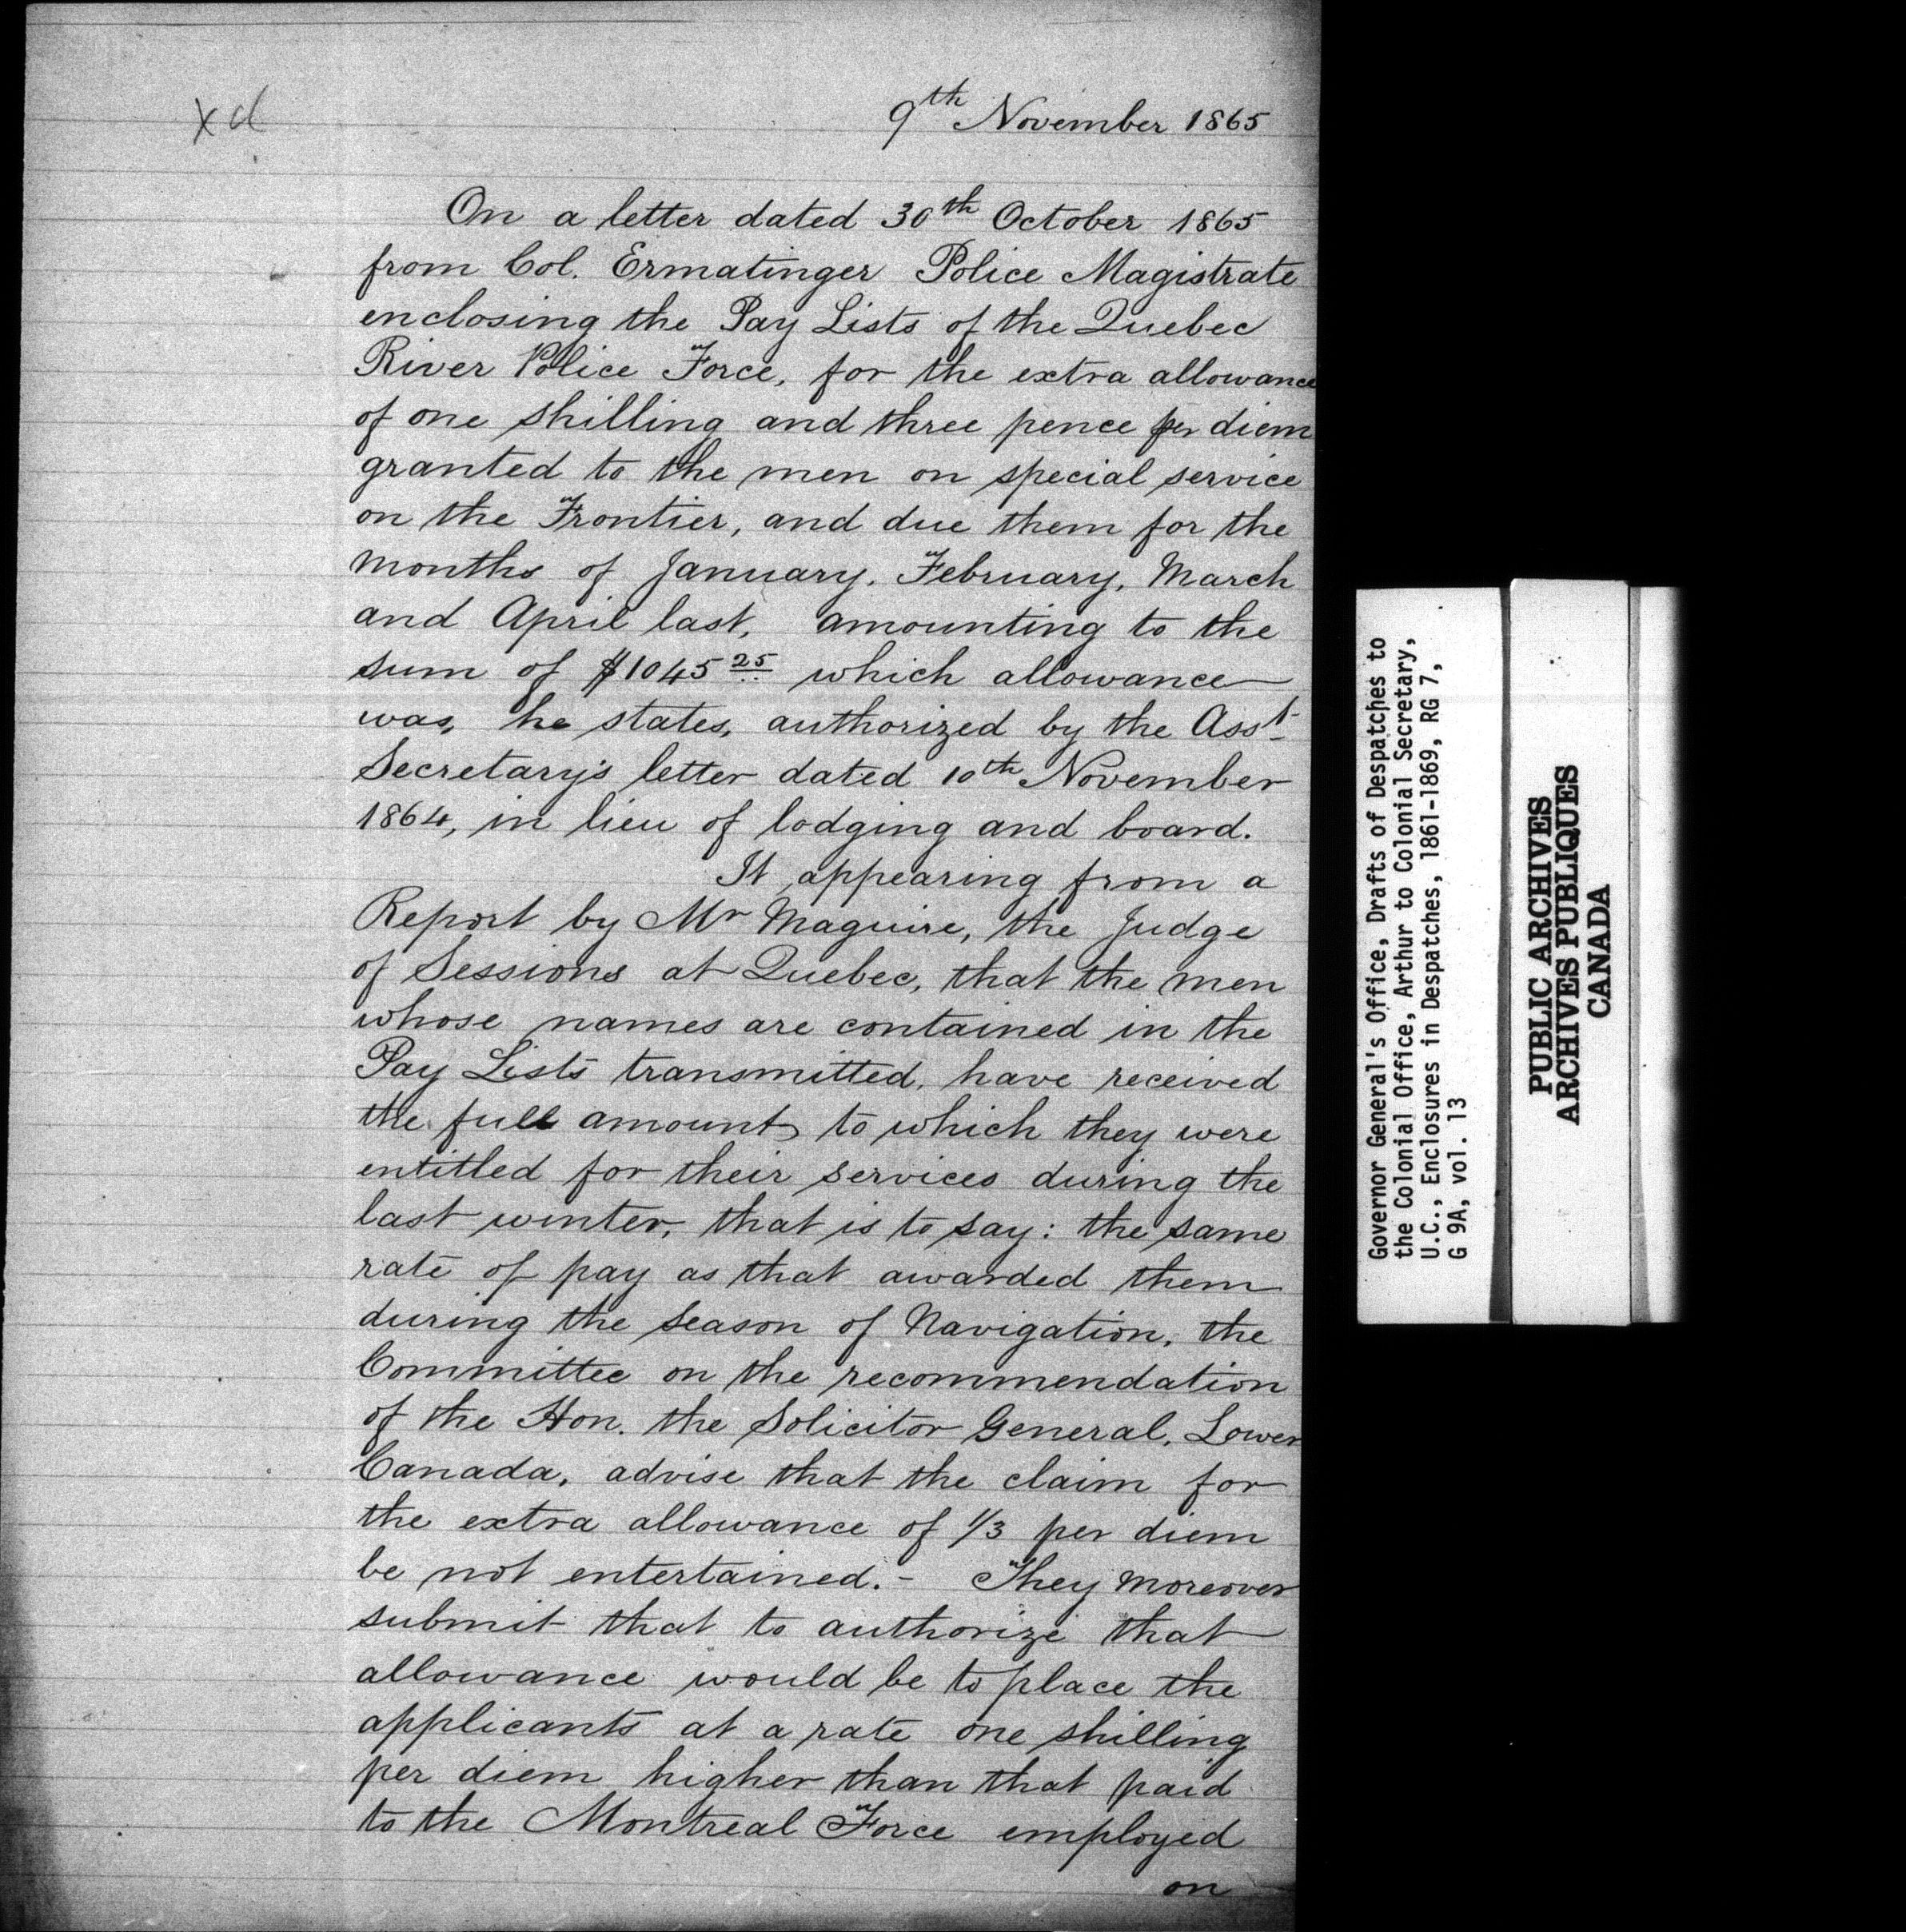 xd
9th November 1865
On a letter dated 30th October 1865
from Col. Ermatinger Police Magistrate
enclosing the Pay Lists of the Quebec
River Police Force, for the extra allowance
of one shilling and three pence per diem
granted to the men on special service
on the Frontier, and due them for the
months of January, February, March
and April last, amounting to the
sum of $1045 25 which allowance
was, he states, authorized by the Asst
Secretary's letter dated 10th November
1864, in lieu of lodging and board.
It appearing from a
Report by Mr Maguire, the Judge
of Sessions at Quebec, that the men
whose names are contained in the
Pay Lists transmitted, have received
the full amount to which they were
entitled for their services during the
last winter, that is to say: the same
rate of pay as that awarded them
during the season of Navigation, the
Committee on the recommendation
of the Hon. the Solicitor General, Lower
Canada, advise that the claim for
the extra allowance of 1/3 per diem
be not entertained.- They moreover
submit that to authorize that
allowance would be to place the
applicants at a rate one shilling
per diem higher than that paid
to the Montreal Force employed
on
Governor General's Office, Drafts of Despatches to
the Colonial Office, Arthur to Colonial Secretary,
U.C., Enclosures in Despatches, 1861-1869, RG 7,
G 9A, vol. 13
PUBLIC ARCHIVES
ARCHIVES PUBLIQUES
CANADA